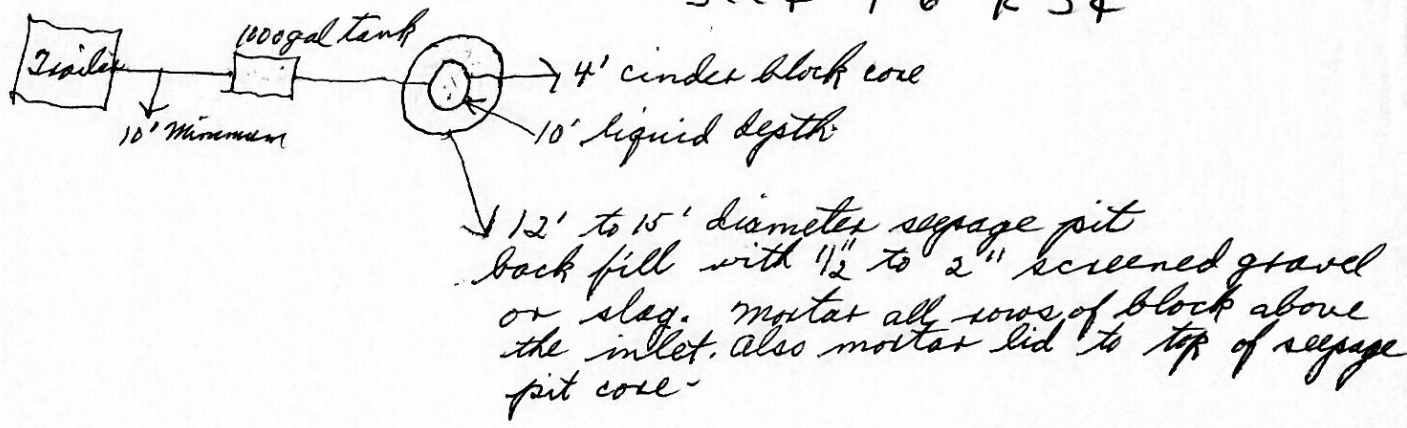 Trailer
1000 gal tank
10' Minimum
4' cinder block core
10' liquid depth
12' to 15' diameter seepage pit
back fill with 1/2" to 2" screened gravel
or slag. Mortar all rows of block above
the inlet. Also mortar lid to top of seepage
pit core-